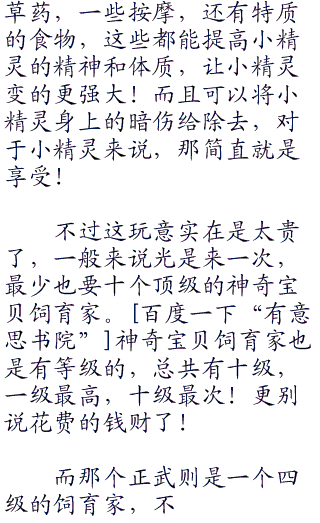 草药，一些按摩，还有特质
的食物，这些都能提高小精
灵的精神和体质，让小精灵
变的更强大！而且可以将小
精灵身上的暗伤给除去，对
于小精灵来说，那简直就是
享受！
不过这玩意实在是太贵
了，一般来说光是来一次，
最少也要十个顶级的神奇宝
贝饲育家。[百度一下“有意
思书院”]神奇宝贝饲育家也
是有等级的，总共有十级，
一级最高，十级最次！更别
说花费的钱财了！
而那个正武则是一个四
级的饲育家，不